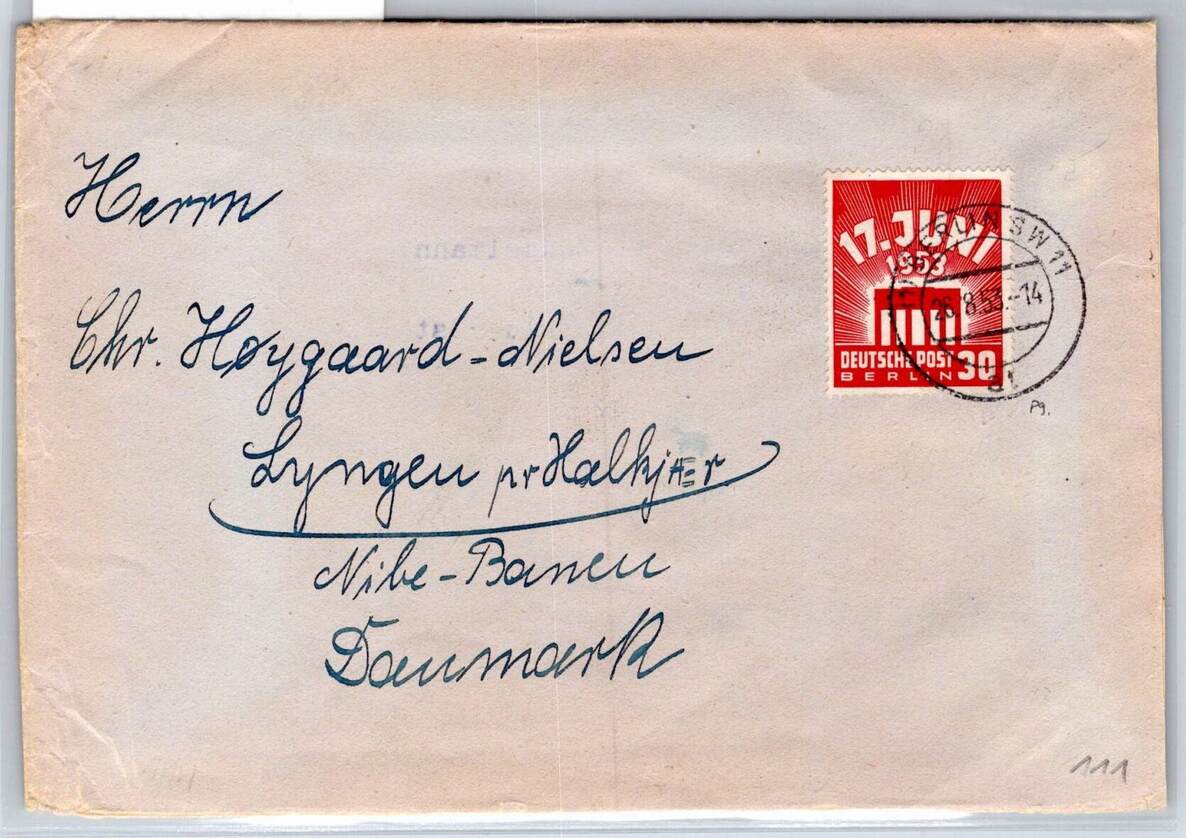 Herrn
Chr. Høygaard-Nielsen
Lyngen pr Halkjær
Nibe-Banen
Danmark
17. JUNI
1953
DEUTSCHE POST
BERLIN 30
BERLIN SW 11
26.8.53.-14
Pg.
111